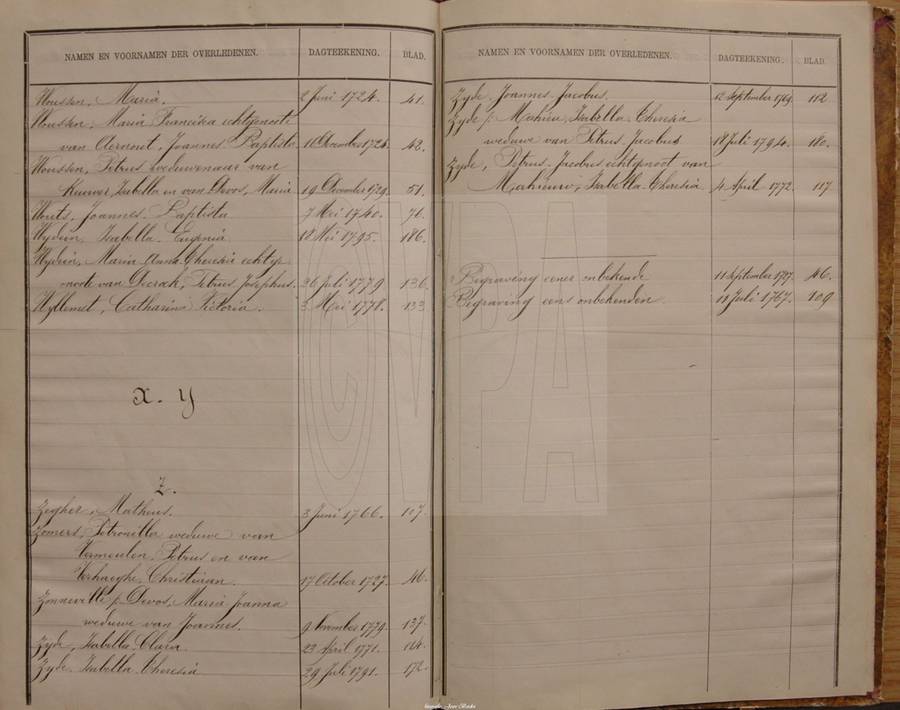 NAMEN EN VOORNAMEN DER OVERLEDENEN. DAGTEEKENING. BLAD.
Woussen, Maria. 2 Juni 1724. 41.
Woussen, Maria Francisca echtgenoote
van Aernout, Joannes Baptista 1726. 42.
Woussen, Petrus weduwenaar van
Isabella en van Maria 19 December 1729. 51.
Wuts, Joannes Baptista 7 Mei 1740. 76.
Wydein, Isabella Eugenia 18 Mei 1795. 186.
Wydein, Maria Anna Theresia echtge-
noote van Petrus Josephus. 26 Juli 1779 136.
Catharina Victoria. 3 Mei 1778. 133
X. Y
Z.
Zegher, Matheus. 3 Juni 1766. 107.
Zomers, Petronilla weduwe van
Vermeulen, Petrus en van
Verhaeghe, Christiaan. 17 October 1727. 46.
Zonnevelle Devos, Maria Joanna
weduwe van Joannes. 9 November 1779. 137.
Zyde, Isabella Clara 23 April 1771.
Zyde, Isabella Theresia 29 Juli 1791. 172.
NAMEN EN VOORNAMEN DER OVERLEDENEN. DAGTEEKENING. BLAD.
Zyde, Joannes Jacobus. 12 September 1769. 112
Zyde Mahieu, Isabella Theresia
weduwe van Petrus Jacobus 18 Juli 1794. 180.
Zyde, Petrus Jacobus echtgenoot van
Mahieuw, Isabella Theresia 4 April 1772. 117
Begraving eener onbekende 11 September 1727. 46.
Begraving eens onbekenden 18 Juli 1767. 109
CVPA